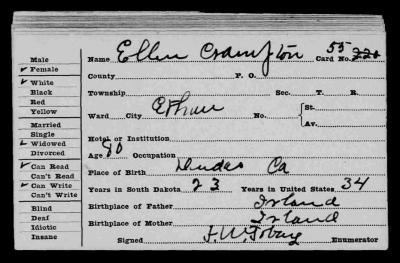 Male
✓ Female
✓ White
Black
Red
Yellow
Married
Single
✓ Widowed
Divorced
✓ Can Read
Can't Read
✓ Can Write
Can't Write
Blind
Deaf
Idiotic
Insane
Name Ellen Crampton Card No. 55 221
County P. O.
Township Sec. T. R.
Ward City Ethan No. St. Av.
Hotel or Institution
Age 80 Occupation
Place of Birth Dundas Ca
Years in South Dakota 23 Years in United States 34
Birthplace of Father Irland
Birthplace of Mother Irland
Signed J. W. Enumerator